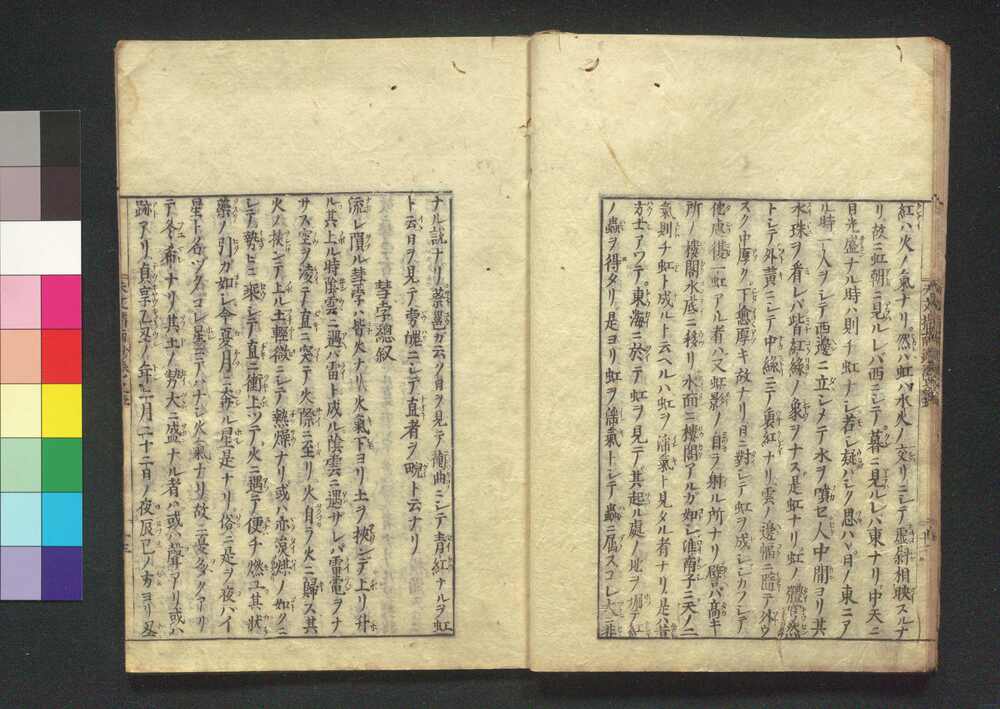 紅ハ火ノ氣ナリ然ハ虹ハ水火ノ交リニシテ虚斜相映スルナ
リ故ニ虹朝ニ見ルレバ西ニシテ暮ニ見ルレバ東ナリ中天ニ
日光盛ナル時ハ則チ虹ナシ若シ疑ハシク思ハヾ日ノ東ニア
ル時一人ヲシテ西邊ニ立シメテ水ヲ噴セ人中間ヨリ其
水珠ヲ看レバ皆紅緑ノ象ヲナス是虹ナリ虹ノ體
トシテ外黄ニシテ中緑ニシテ裏紅ナリ雲ノ邊幅ニ隨テ外ウ
スク中厚ク下愈厚キ故ナリ日ニ對シテ虹ヲ成シ
他處復一虹アル者ハ又虹影ノ自ラ射ル所ナリ譬バ高キ
所ノ樓閣水底ニ移リ水面ニ樓閣アルガ如シ淮南子ニ天ノ二
氣則チ虹ト成ルト云ヘルハ虹ヲ淫氣ト見タル者ナリ是ハ昔
方士アツテ東海ニ於テ虹ヲ見テ其起ル處ノ地ヲ堀テ紅
ノ蟲ヲ得タリ是ヨリ虹ヲ淫氣トシテ蟲ニ属スコレ大ニ非
ナル説ナリ蔡邕ガ云ク日ヲ見テ傾曲ニシテ青紅ナルヲ虹
ト云日ヲ見テ旁ニシテ直者ヲト云ナリ
彗孛總叙
流レ隕ル彗孛ハ皆火ナリ火氣下ヨリ土ヲ挾ンデ上リ升
ル其上ル時陰雲ニ遇バ雷ト成ル陰雲ニ遇サレバ雷電ヲナ
サス空ヲ凌テ直ニ突テ火際ニ至リ火自ラ火ニ歸ス其
火ノ挾ンデ上ル土輕微ニシテ熱燥ナリ或ハ亦炭煤ノ如クニ
シテ勢ヒニ乘シテ直ニ衝上ツテ火ニ遇テ便チ燃ユ其狀
藥ノ引ガ如シ今夏月ニ奔ル星是ナリ俗ニ是ヲ夜バイ
星ト名ヅクコレ星ニテハナシ火氣ナリ故ニ夏多クアリ
テ冬希ナリ其土ノ勢大ニ盛ナル者ハ或ハ聲アリ或ハ
跡アリ貞享乙丑ノ年二月二十二日ノ夜辰巳ノ方ヨリ
十二
十三